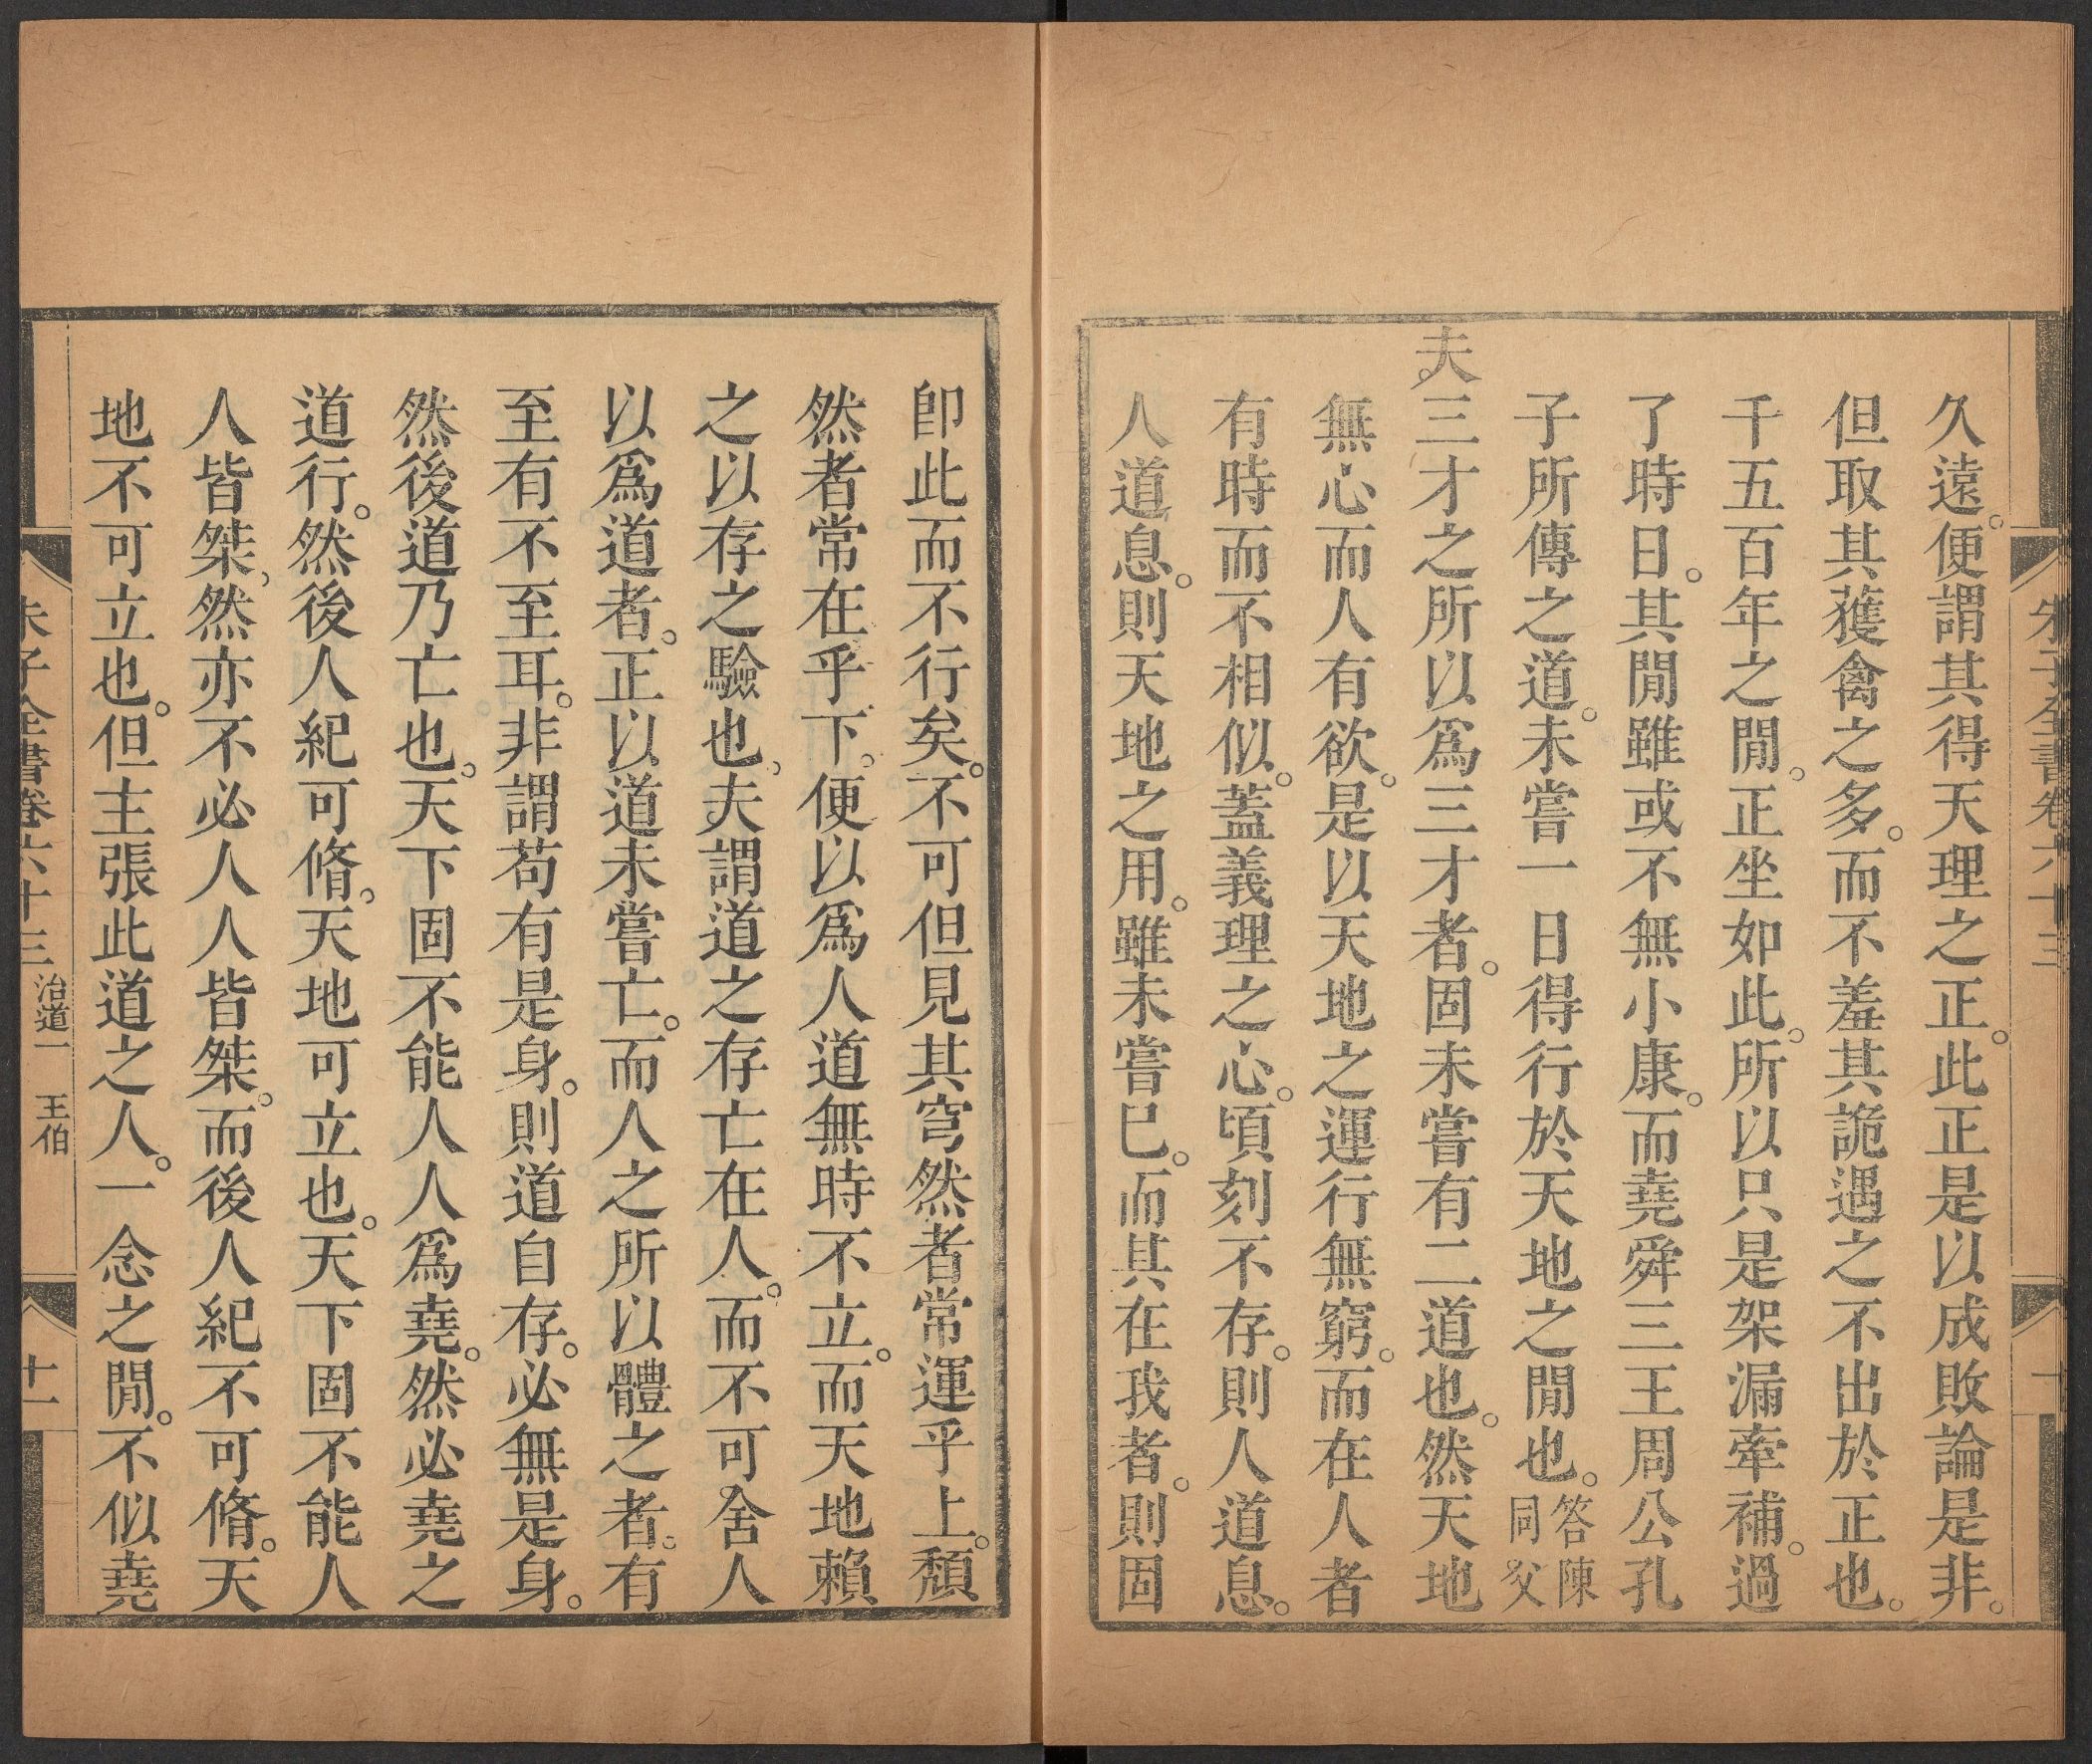 朱子全書卷六十三
久遠。便謂其得天理之正。此正是以成敗論是非。
但取其獲禽之多。而不羞其詭遇之不出於正也。
千五百年之閒。正坐如此。所以只是架漏牽補。過
了時日。其閒雖或不無小康。而堯舜三王周公孔
子所傳之道。未嘗一日得行於天地之閒也。答陳同父
夫。三才之所以爲三才者。固未嘗有二道也。然天地
無心而人有欲。是以天地之運行無窮。而在人者
有時而不相似。蓋義理之心。頃刻不存。則人道息。
人道息。則天地之用。雖未嘗已。而其在我者。則固
卽此而不行矣。不可但見其穹然者常運乎上。頹
然者常在乎下。便以爲人道無時不立。而天地賴
之以存之驗也。夫謂道之存亡在人。而不可舍人
以爲道者。正以道未嘗亡。而人之所以體之者。有
至有不至耳。非謂苟有是身。則道自存。必無是身。
然後道乃亡也。天下固不能人人爲堯。然必堯之
道行。然後人紀可脩。天地可立也。天下固不能人
人皆桀。然亦不必人人皆桀。而後人紀不可脩。天
地不可立也。但主張此道之人。一念之閒。不似堯
朱子全書卷六十三 治道一 王伯 十一